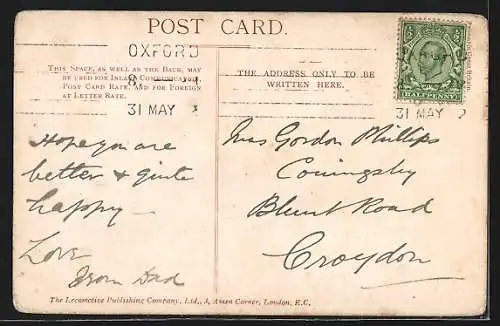 POST CARD.
OXFORD
THIS SPACE, AS WELL AS THE BACK, MAY
BE USED FOR INLAND COMMUNICATION
POST CARD RATE, AND FOR FOREIGN
AT LETTER RATE.
31 MAY
THE ADDRESS ONLY TO BE
WRITTEN HERE.
HALFPENNY
31 MAY
Hope you are
better & quite
happy —
Love
From Dad
Mrs Gordon Phillips
Coningsby
Blunt Road
Croydon
The Locomotive Publishing Company, Ltd., 3, Amen Corner, London, E.C.